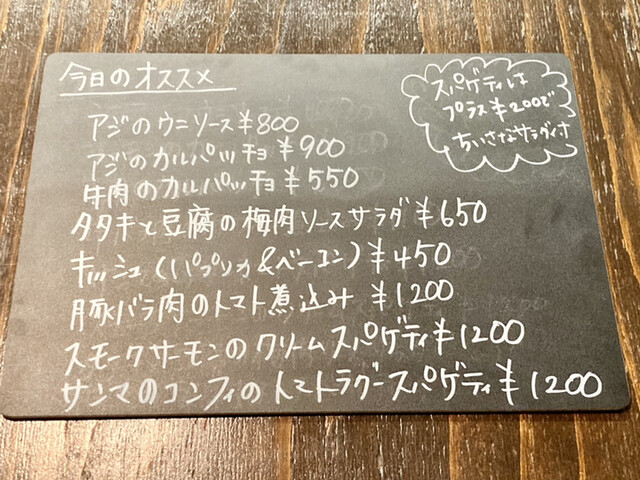 今日のオススメ
スパゲティは
プラス¥200で
ちいさなサラダ付
アジのウニソース¥800
アジのカルパッチョ¥900
牛肉のカルパッチョ¥550
タタキと豆腐の梅肉ソースサラダ¥650
キッシュ(パプリカ&ベーコン)¥450
豚バラ肉のトマト煮込み ¥1200
スモークサーモンのクリームスパゲティ¥1200
サンマのコンフィのトマトラグースパゲティ¥1200